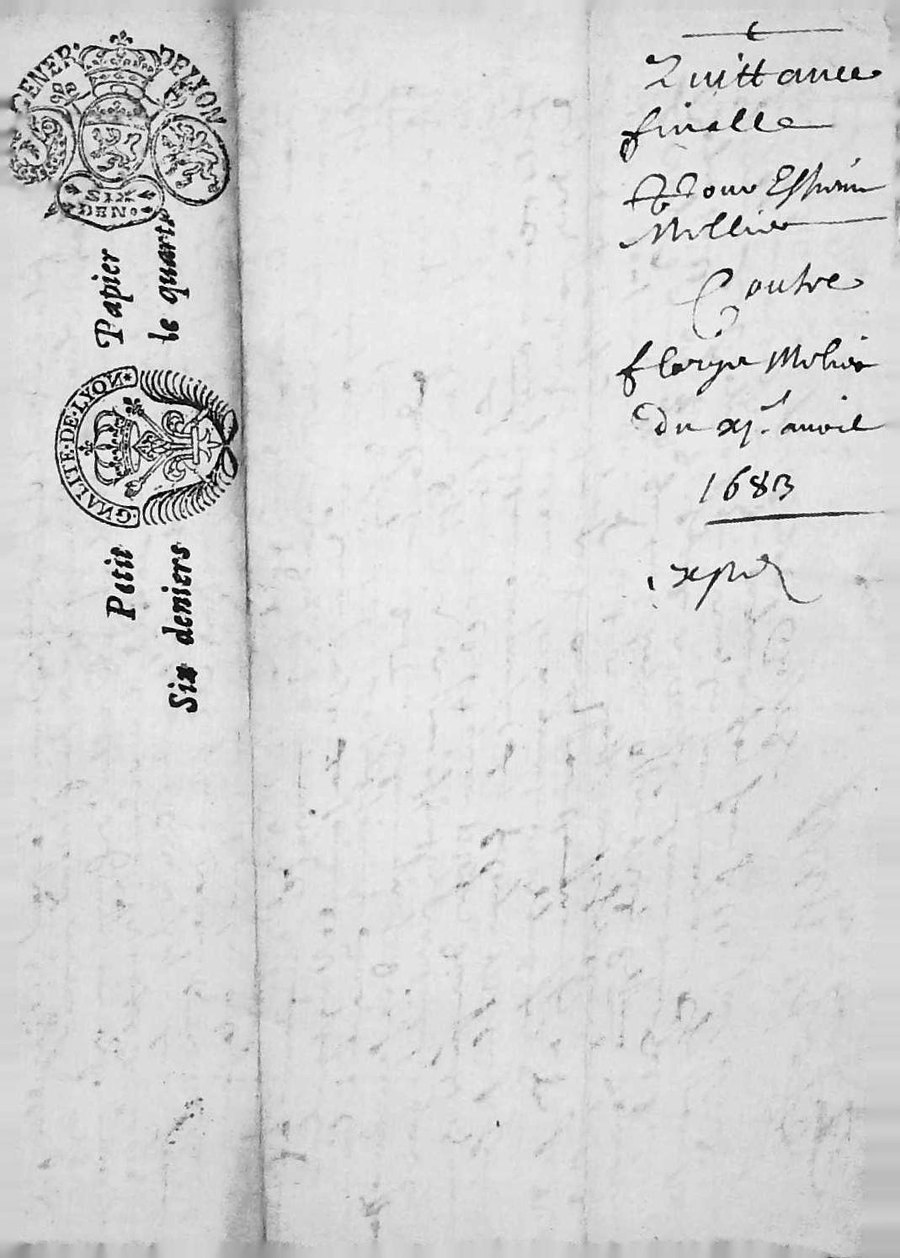 GENER. DE LYON
SIX
DEN.
Papier
le quart
GNALITE·DE·LYON
Petit
Six deniers
Quittance
finalle
Pour Estienne
Mollier
Contre
Molier
du xj.e avril
1683